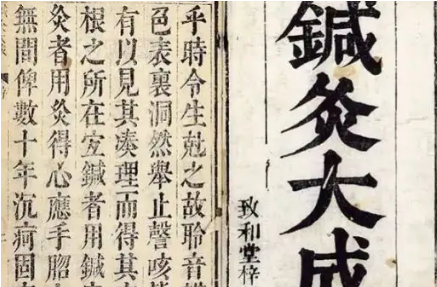 鍼灸大成
致和堂梓
乎時令生尅之故聆音
色表裏洞然舉止謦咳
有以見其湊理而得其
根之所在宐鍼者用鍼
灸者用灸得心應手
無間俾數十年沉痾固